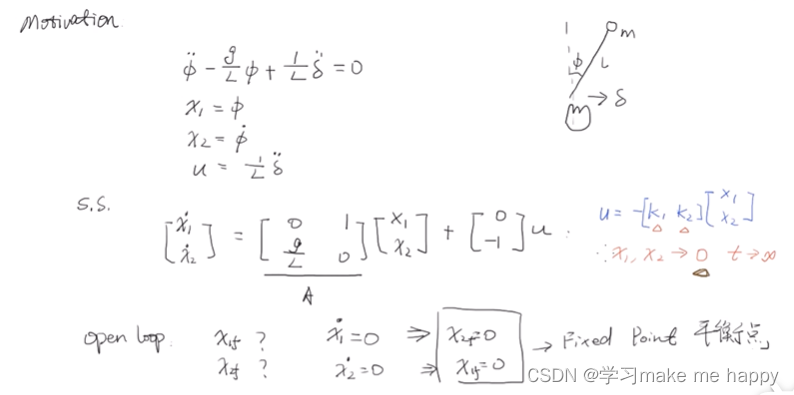 Motivation
φ̈ - g/L φ + 1/L δ̈ = 0
x₁ = φ
x₂ = φ̇
u = 1/L δ̈
φ L m
m → δ
S.S. [ẋ₁ ẋ₂] = [0 1; g/L 0] [x₁ x₂] + [0 -1] u.
A
u = -[k₁ k₂] [x₁ x₂]
∴ x₁, x₂ → 0 t → ∞
open loop. x₁f ? ẋ₁ = 0 ⇒ x₂f = 0 → Fixed Point 平衡点
x₂f ? ẋ₂ = 0 ⇒ x₁f = 0
CSDN @学习make me happy